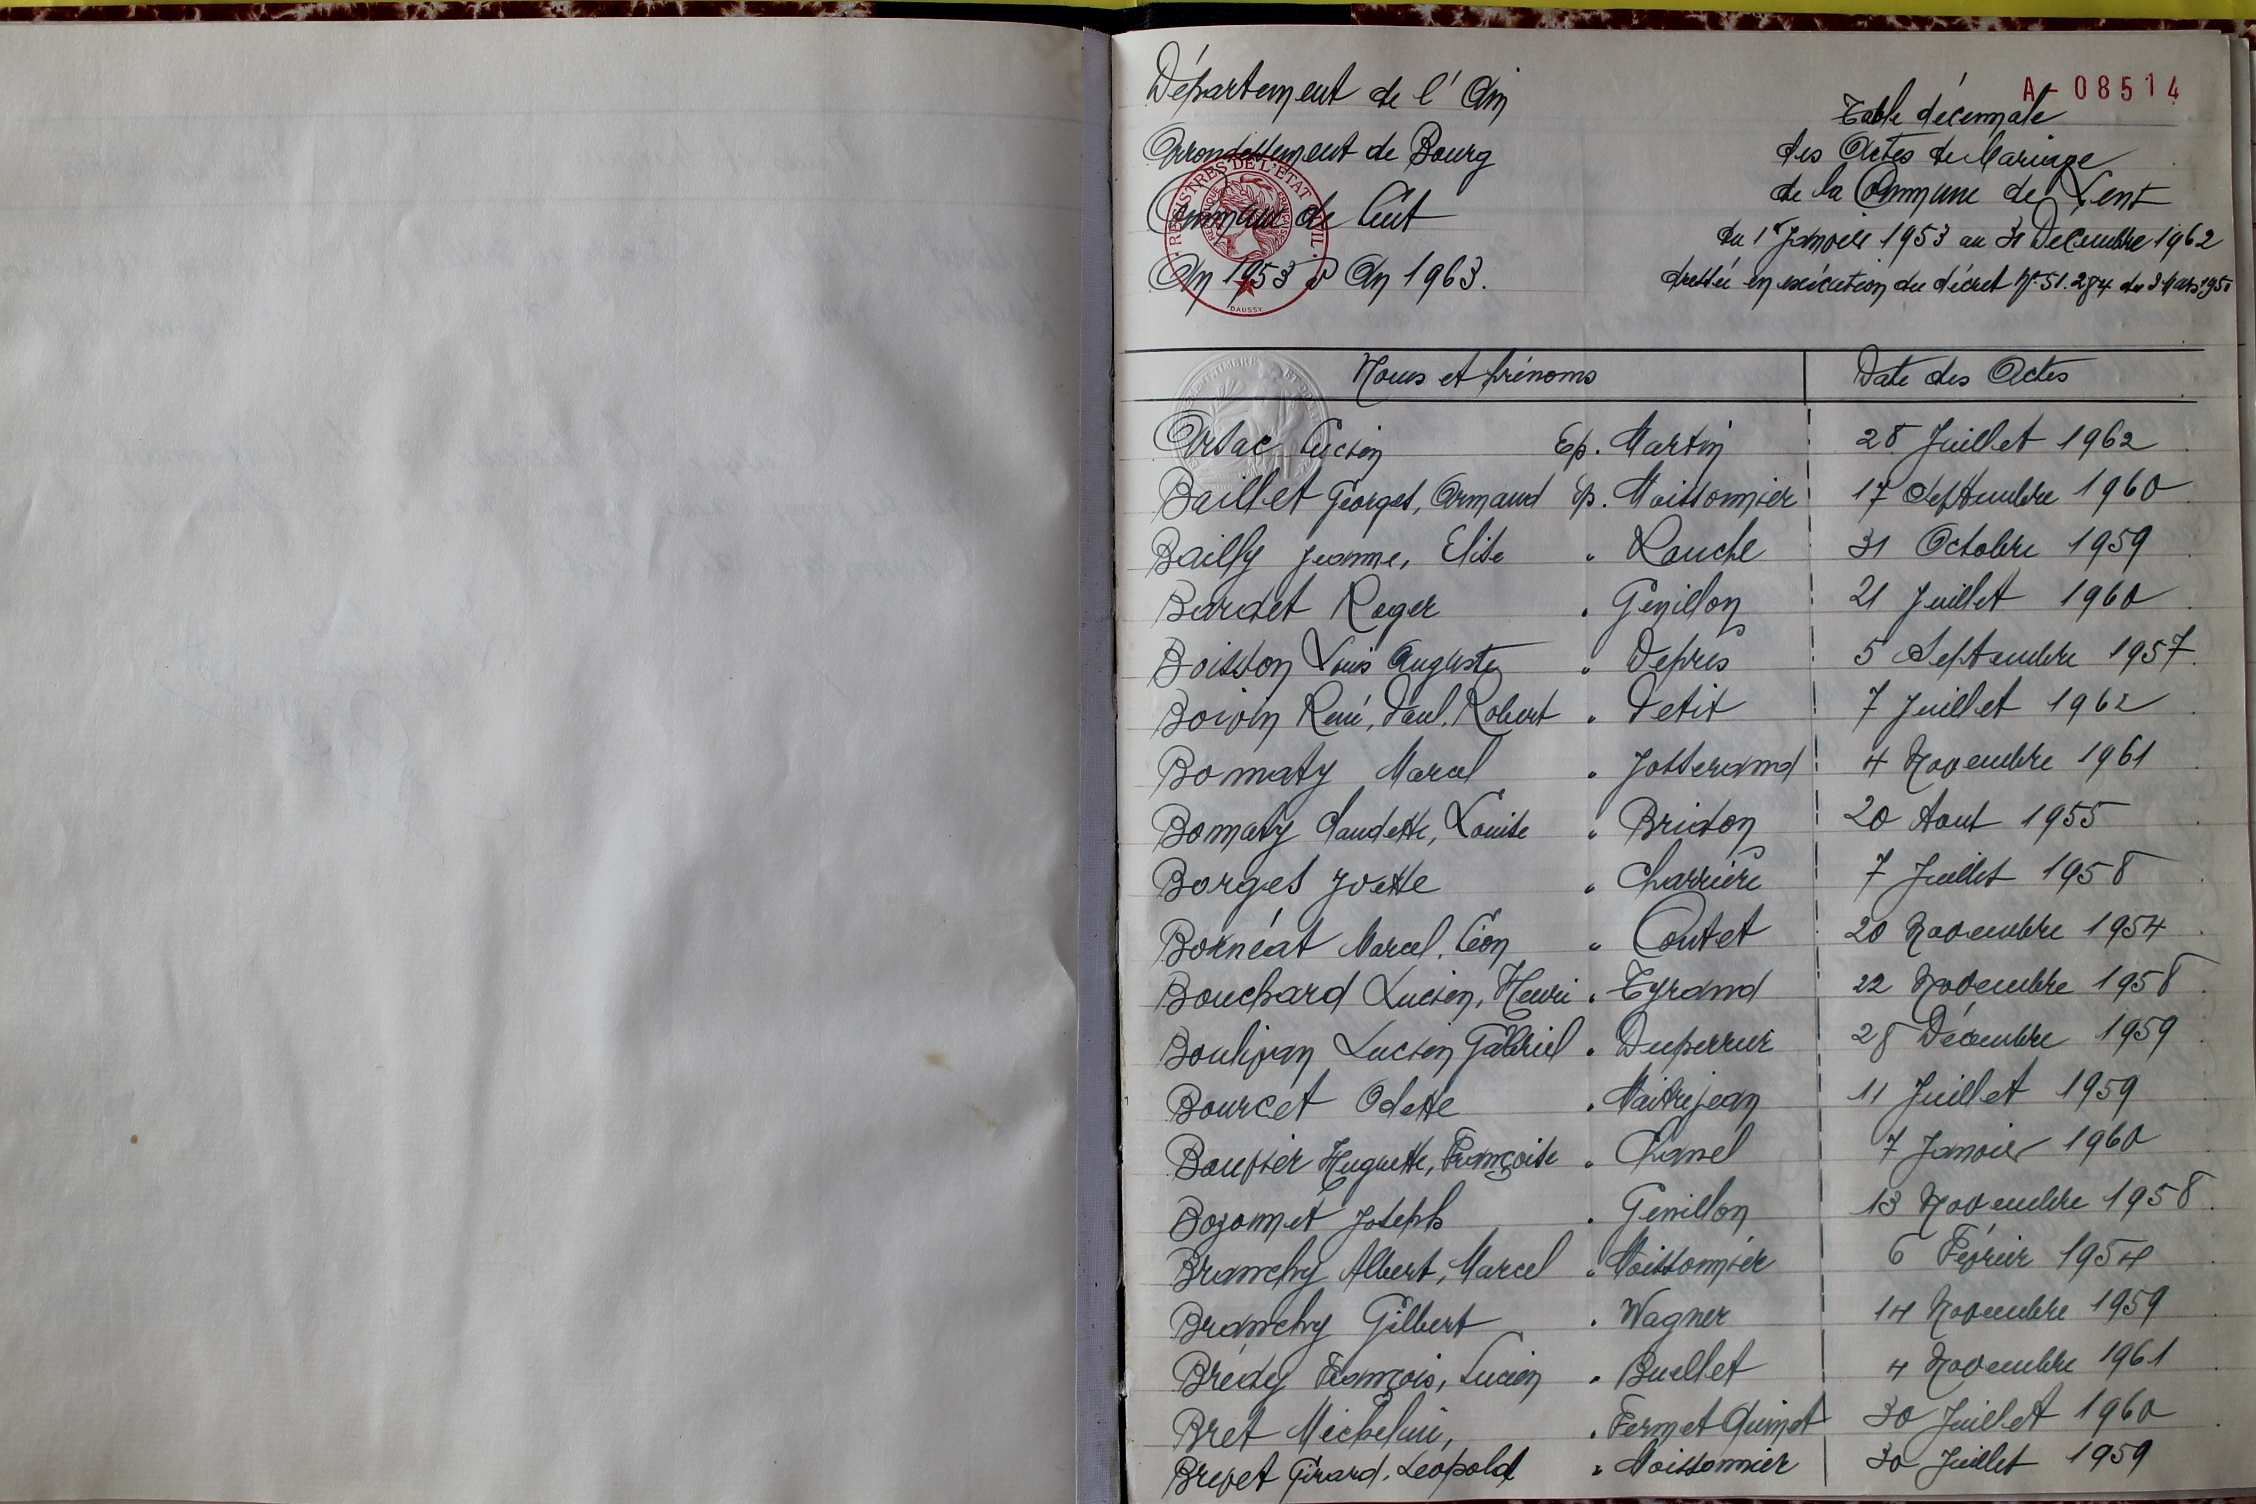 Département de l'Ain
Arrondissement de Bourg
Commune de Lent
An 1953 à An 1963.
REGISTRES DE L'ETAT CIVIL.
DAUSSY
A - 08514
Table décennale
des Actes de Mariage
de la Commune de Lent
du 1er Janvier 1953 au 31 Décembre 1962
dressée en exécution du décret No 51.284 du 3 Mars 1951
Noms et prénoms Date des Actes
Arsac Lucien Ep. Martin 28 Juillet 1962
Baillet Georges, Armand Ep. Moissonnier 17 Septembre 1960
Bailly Jeanne, Elise " Louche 31 Octobre 1959
Bardet Roger " Genillon 21 Juillet 1960
Boisson Louis Auguste " Depres 5 Septembre 1957
Boivin René, Paul, Robert " Petit 7 Juillet 1962
Bomaty Marcel " Josserand 4 Novembre 1961
Bomaty Claudette, Louise " Bridon 20 Aout 1955
Borges Yvette " Charrière 7 Juillet 1958
Bornéat Marcel, Léon " Coutet 20 Novembre 1954
Bouchard Lucien, Henri " Tyrand 22 Novembre 1958
Boulivan Lucien Gabriel " Duperrier 28 Décembre 1959
Bourcet Odette " Maitrejean 11 Juillet 1959
Bouvier Huguette, Françoise " Chanel 7 Janvier 1960
Bozonnet Joseph " Genillon 13 Novembre 1958
Branchy Albert, Marcel " Moissonnier 6 Février 1954
Branchy Gilbert " Wagner 14 Novembre 1959
Brédy François, Lucien " Buellet 4 Novembre 1961
Bret Micheline, " Fermet Quinet 30 Juillet 1960
Brevet Girard, Leopold " Moissonnier 30 Juillet 1959